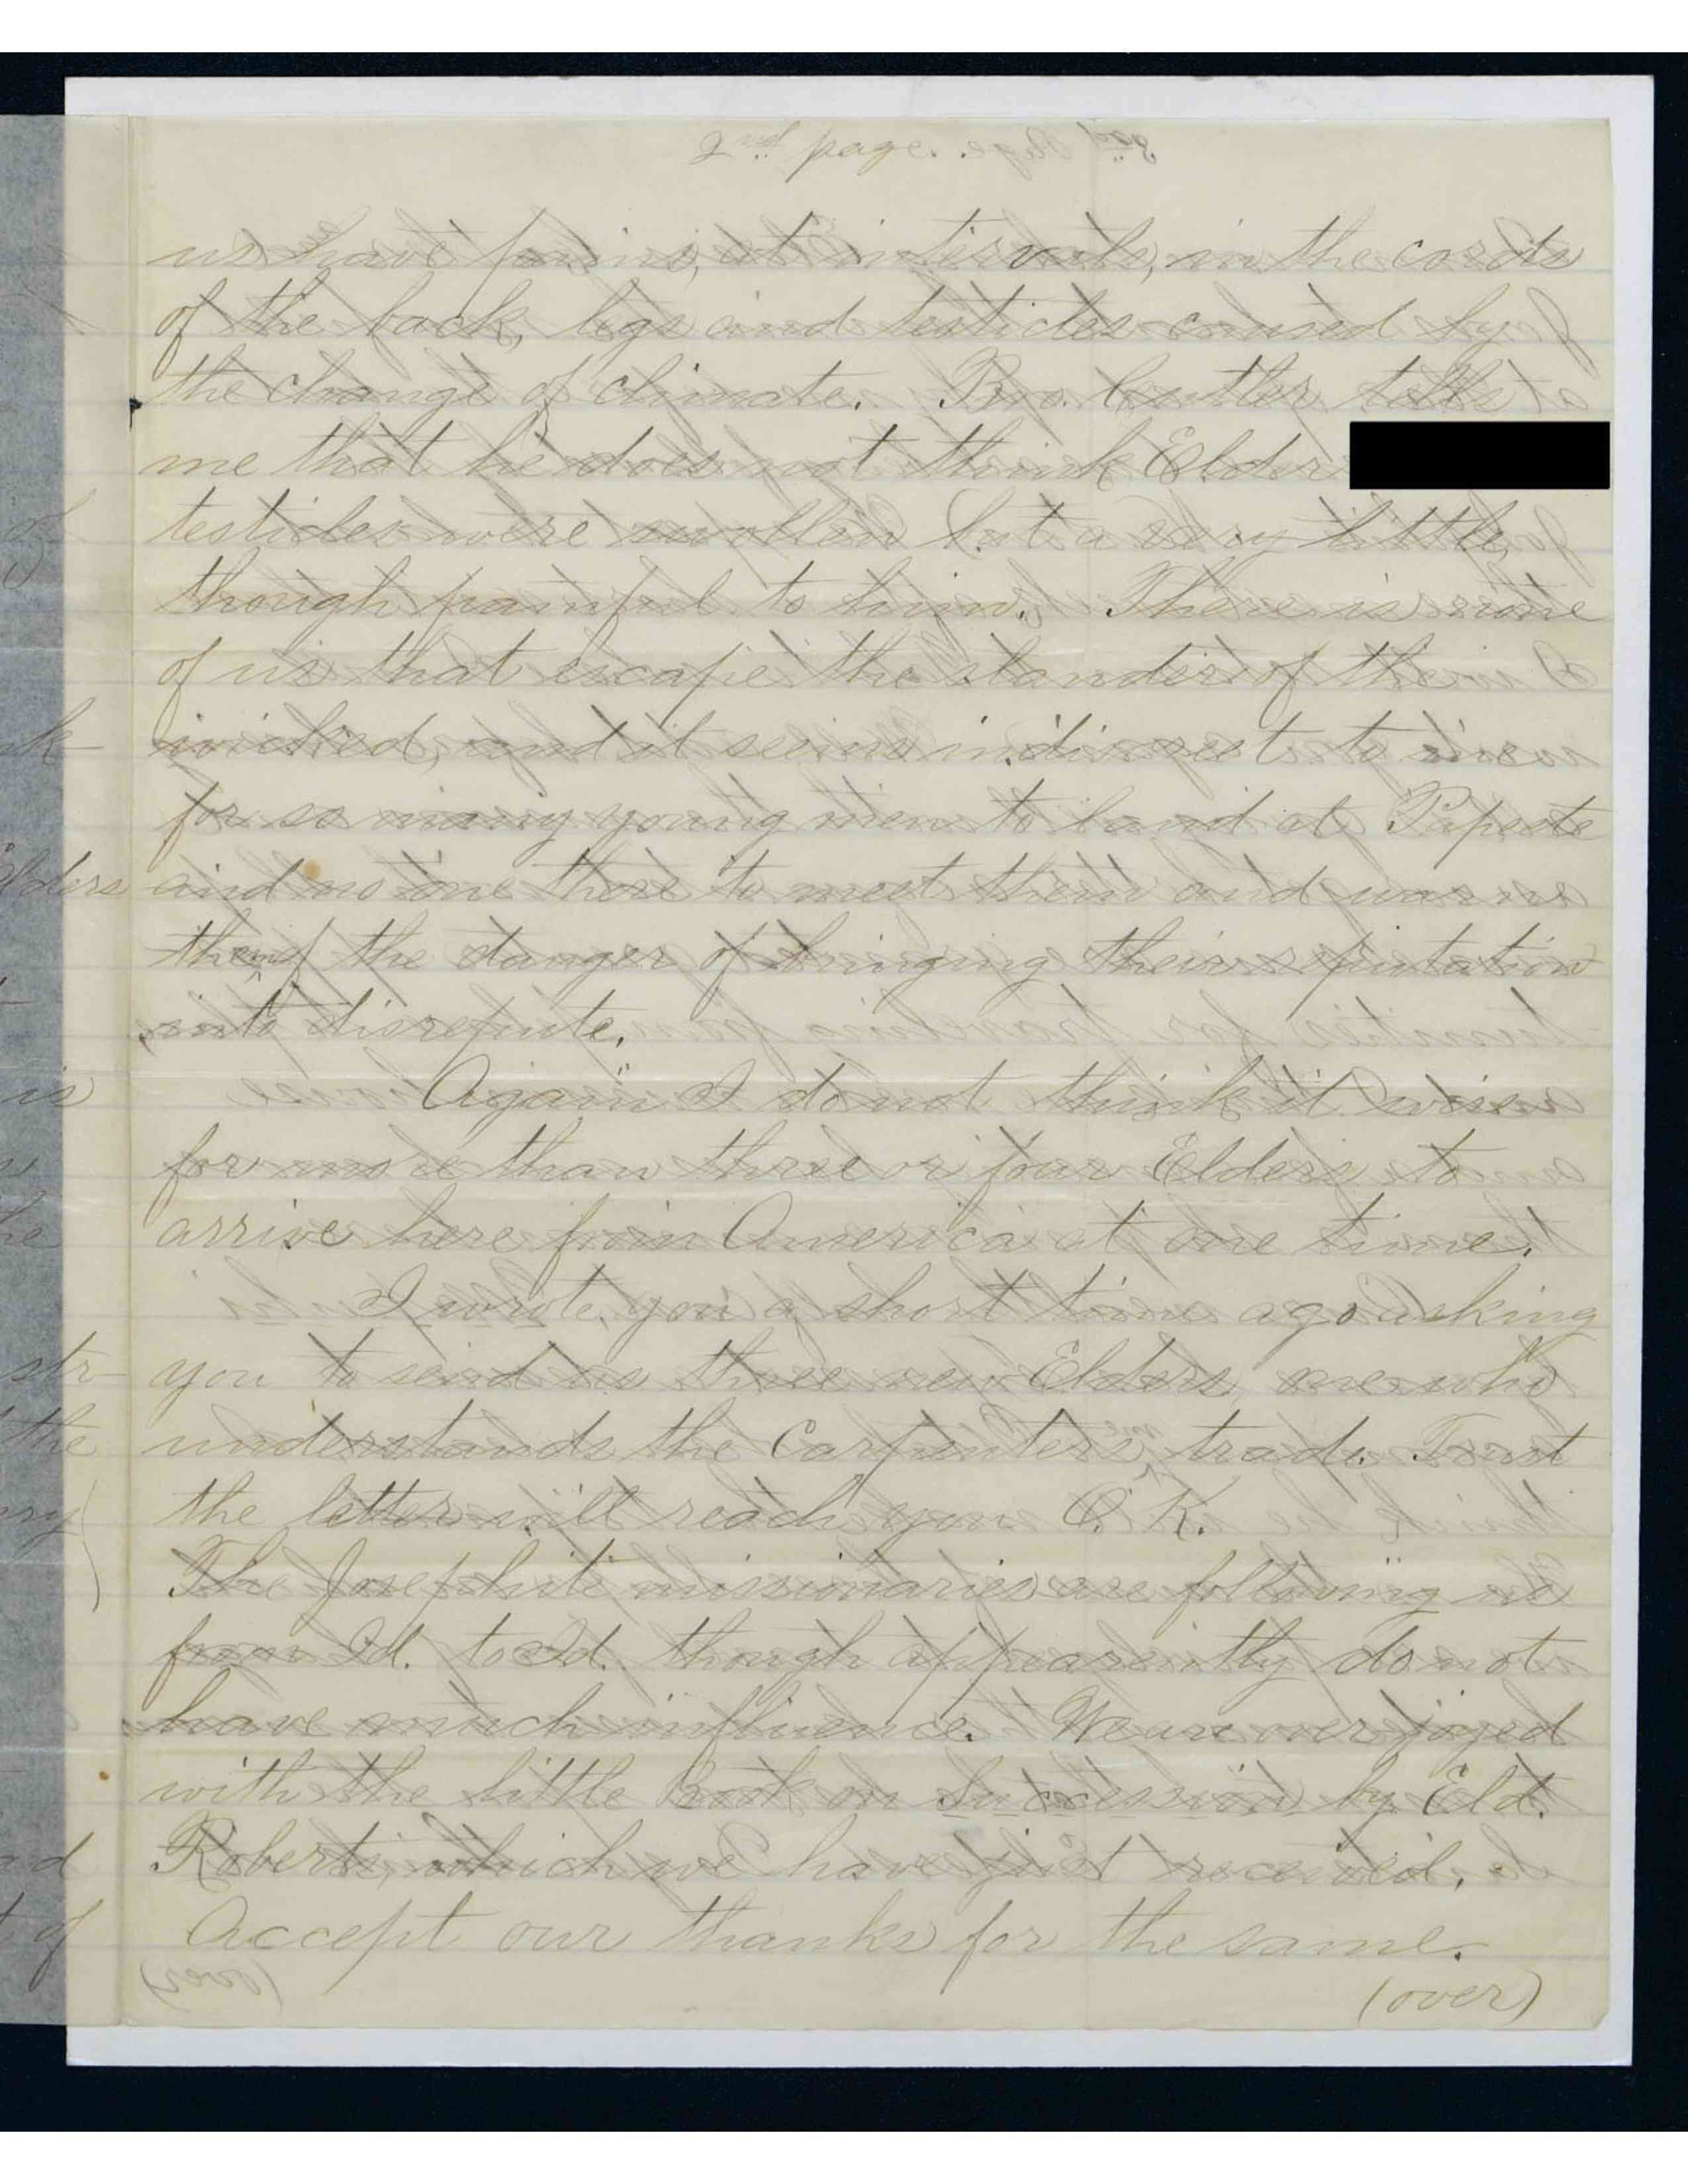 2nd page.
us have pains, at intervals, in the cords
of the back, legs and testicles caused by
the change of climate. Bro. Cutler tells
me that he does not think Elder
testicles were swollen but a very little,
though painful to him. There is none
of us that escape the slander of the
wicked, and it seems indiscreet to me
for so many young men to land at Papeete
and no one there to meet them and warn
them of the danger of bringing their reputation
into disrepute.
Again I do not think it wise
for more than three or four Elders to
arrive here from America at one time.
I wrote you a short time ago asking
you to send us three new Elders, one who
understands the Carpenters trade. Trust
the letter will reach you O.K.
The Josephite missionaries are following us
from Id. to Id. though appearantly do not
have much influence. We are overjoyed
with the little Book on Succession by Eld.
Roberts, which we have just received.
Accept our thanks for the same.
(over)